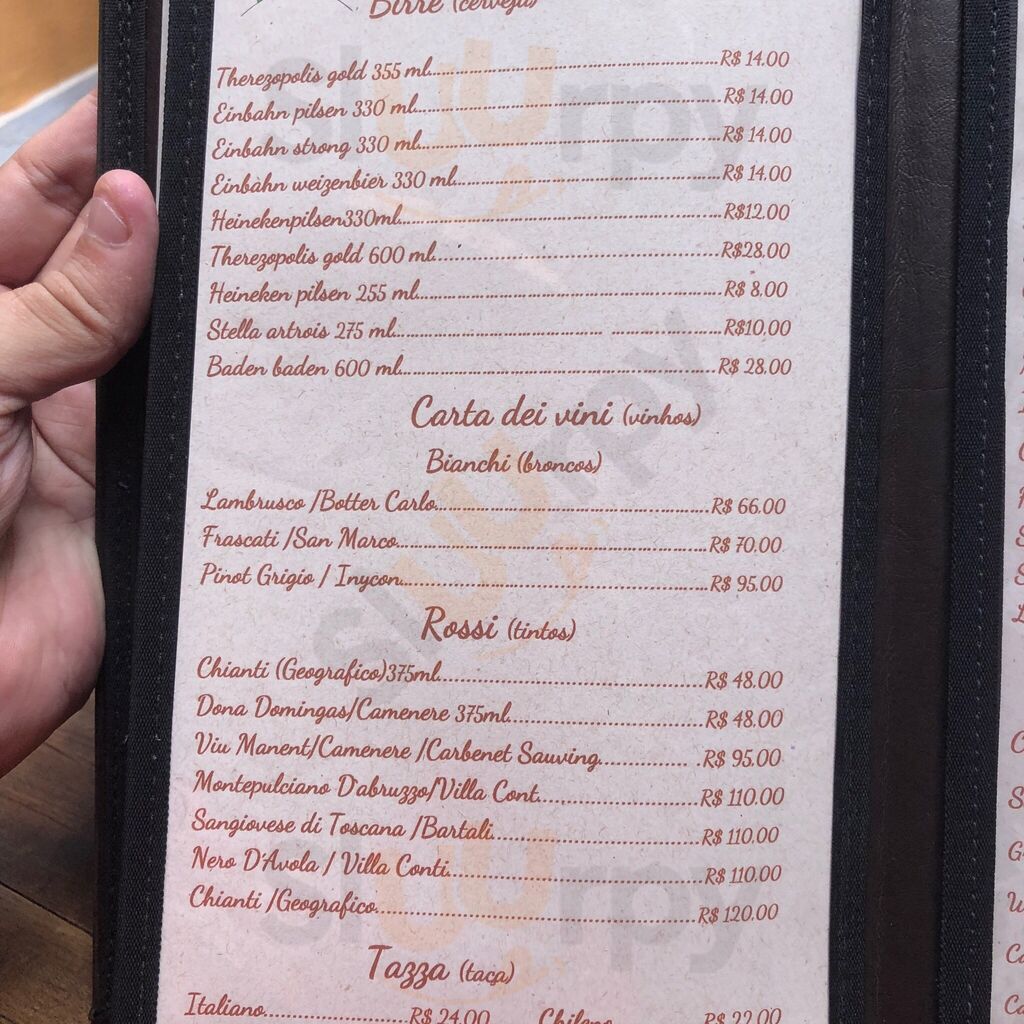 Birre (cerveja)
Therezopolis gold 355 ml....R$ 14.00
Einbahn pilsen 330 ml....R$ 14.00
Einbahn strong 330 ml....R$ 14.00
Einbàhn weizenbier 330 ml....R$ 14.00
Heinekenpilsen330ml....R$12.00
Therezopolis gold 600 ml....R$28.00
Heineken pilsen 255 ml....R$ 8.00
Stella artrois 275 ml....R$10.00
Baden baden 600 ml....R$ 28.00
Carta dei vini (vinhos)
Bianchi (broncos)
Lambrusco /Botter Carlo....R$ 66.00
Frascati /San Marco....R$ 70.00
Pinot Grigio / Inycon....R$ 95.00
Rossi (tintos)
Chianti (Geografico)375ml....R$ 48.00
Dona Domingas/Camenere 375ml....R$ 48.00
Viu Manent/Camenere /Carbenet Sauving.... .R$ 95.00
Montepulciano D'abruzzo/Villa Cont....R$ 110.00
Sangiovese di Toscana /Bartali....R$ 110.00
Nero D'Avola / Villa Conti....R$ 110.00
Chianti /Geografico....R$ 120.00
Tazza (taça)
Italiano....R$ 24.00 Chileno....R$ 22.00
Sluurpy
Sluurpy
Sluurpy